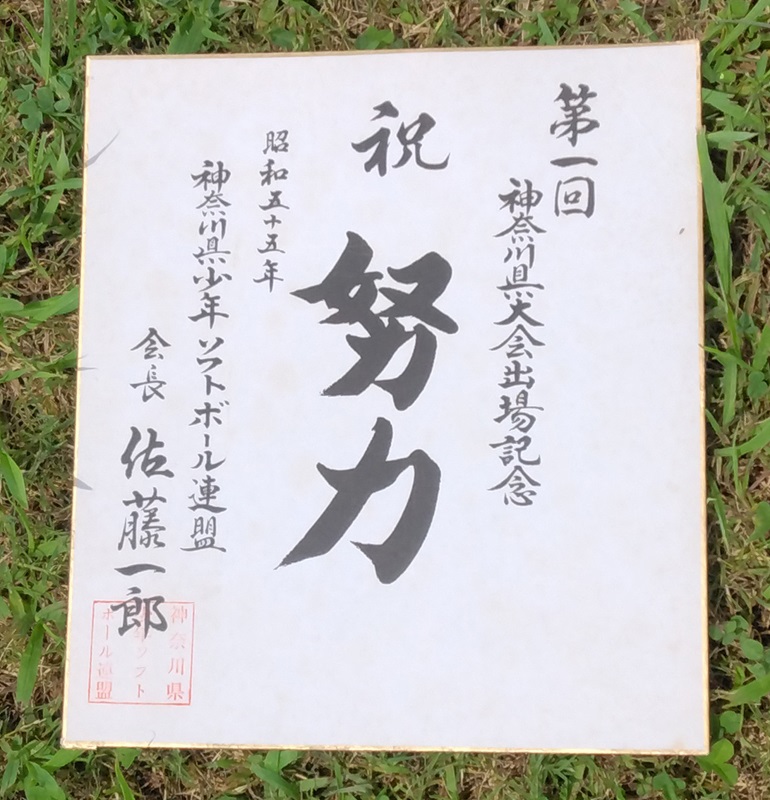 第一回
神奈川県大会出場記念
祝
努力
昭和五十五年
神奈川県少年ソフトボール連盟
会長 佐藤一郎
神奈川県
ソフト
ボール連盟